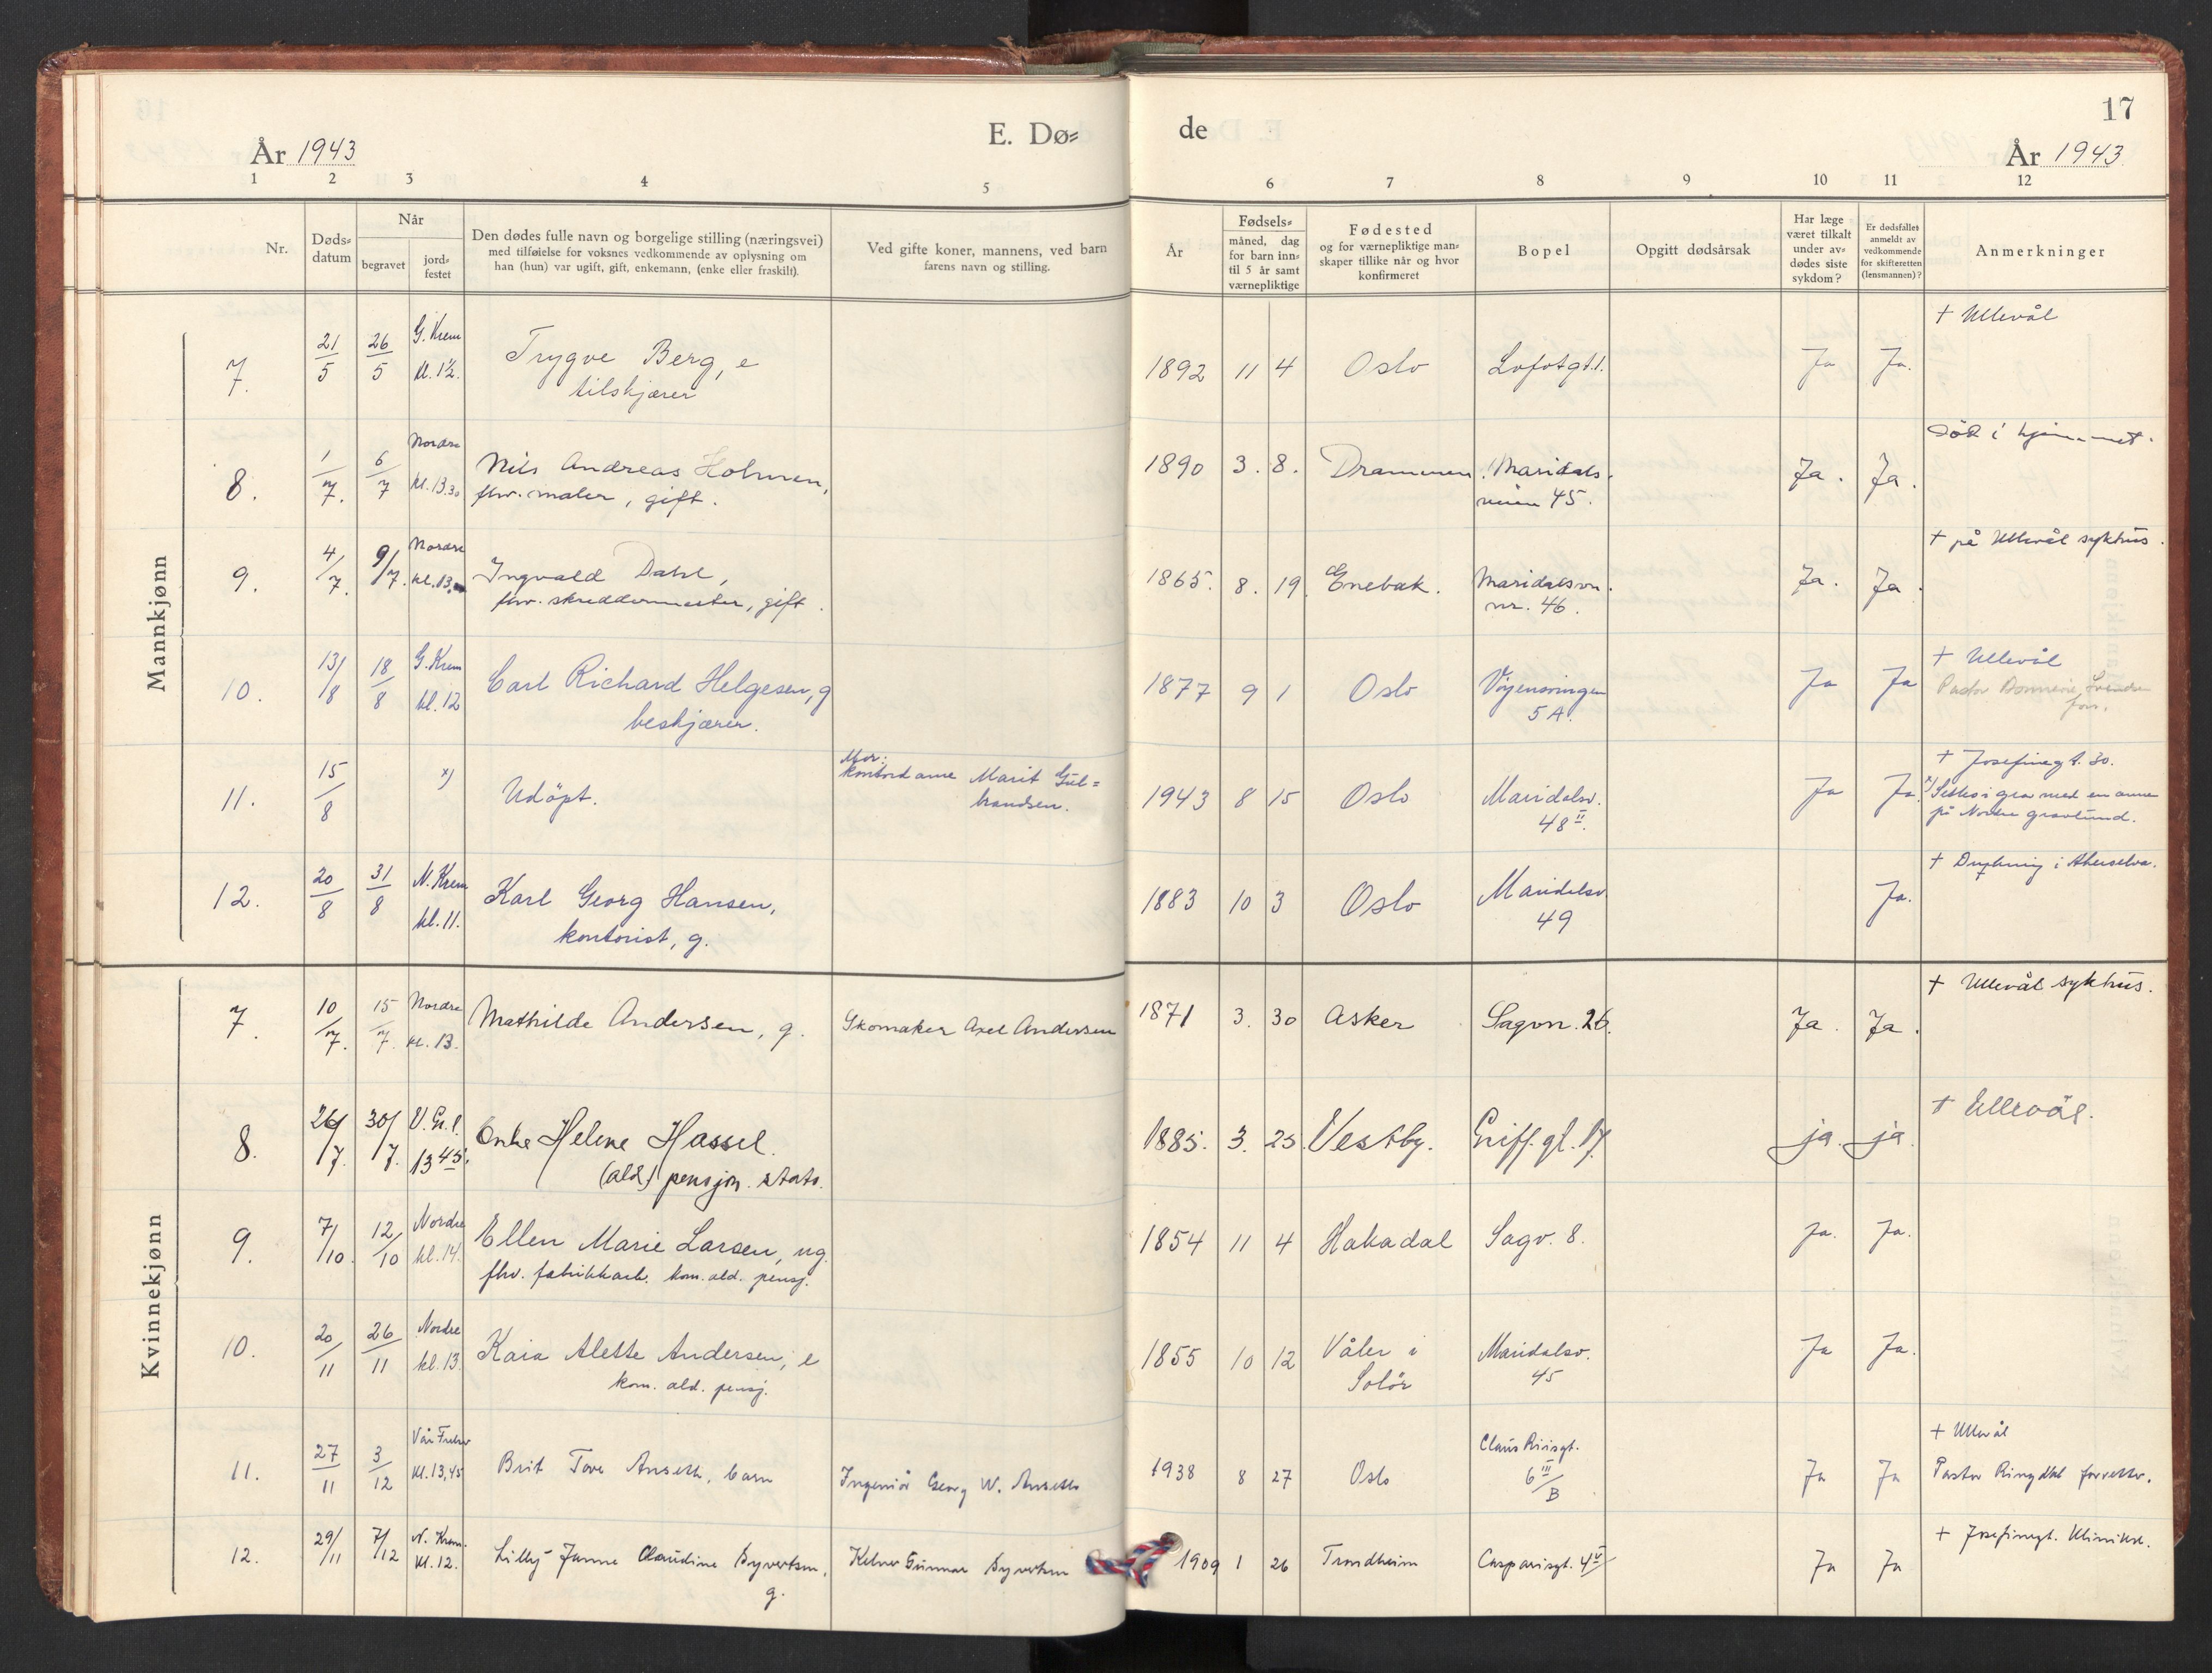 17
E. Dø=
de
År 1943
År 1943
1 2 3 4 5 6 7 8 9 10 11 12
Nr.
Døds=
datum
Når
begravet
jord=
festet
Den dødes fulle navn og borgelige stilling (næringsvei)
med tilføielse for voksnes vedkommende av oplysning om
han (hun) var ugift, gift, enkemann, (enke eller fraskilt).
Ved gifte koner, mannens, ved barn
farens navn og stilling.
År
Fødsels=
måned, dag
for barn inn=
til 5 år samt
værnepliktige
Fødested
og for værnepliktige man=
skaper tillike når og hvor
konfirmeret
Bopel
Opgitt dødsårsak
Har læge
været tilkalt
under av=
dødes siste
sykdom?
Er dødsfallet
anmeldt av
vedkommende
for skifteretten
(lensmannen)?
Anmerkninger
Mannkjønn
7. 21/5 26/5 G. Krem kl. 1½. Trygve Berg, e 1892 11 4 Oslo Lofotgt. 1. Ja Ja. + Ullevål
tilskjærer
8. 1/7. 6/7 Nordre kl. 13.30 Nils Andreas Holmen, 1890 3. 8. Drammen Maridals- Ja. Ja. Död i hjemmet.
fhv. maler, gift. veien 45.
9. 4/7. 9/7. Nordre kl. 13. Ingvald Dahl, 1865. 8. 19 Enebak. Maridalsvn. Ja. Ja. + på Ullevål sykhus.
fhv. skreddermester, gift. nr. 46.
10. 13/8 18/8 G. Krem kl. 12 Carl Richard Helgesen, g 1877 9 1 Oslo Vöyensvingen Ja Ja + Ullevål
beskjærer. 5 A. Pastor
forr.
11. 15/8 x) Udöpt. Mor:
kontordame Marit Gul=
brandsen. 1943 8 15 Oslo Maridalsv.
48 II. Ja Ja + Josefinegt. 30.
x) Settes i grav med en annen
på Nordre gravlund.
12. 20/8 31/8 N. Krem kl. 11. Karl Georg Hansen, 1883 10 3 Oslo Maridalsv. Ja. + Drukning i Akerselva.
kontorist, g. 49
Kvinnekjønn
7. 10/7. 15/7. Nordre kl. 13. Mathilde Andersen, g. Skomaker Axel Andersen 1871 3. 30 Asker Sagvn. 26. Ja. Ja. + Ullevål sykhus.
8. 26/7. 30/7. V. Gr. l. 13 45. Enke Helene Hassel. 1885. 3. 25. Vestby. Griff. gt. 17. ja ja. + Ullevål.
(ald) pensjon. stats.
9. 7/10. 12/10 Nordre kl. 14. Ellen Marie Larsen, ug. 1854 11 4 Hakadal Sagv. 8. Ja. Ja.
fhv. fabrikkarb. kom. ald. pensj.
10. 20/11 26/11 Nordre kl. 13. Kaia Alette Andersen, e 1855 10 12 Våler i Maridalsv. Ja Ja.
kom. ald. pensj. Solör 45
11. 27/11 3/12 Vår Frelser kl. 13,45 Brit Tove Anseth, barn Ingeniör Georg W. Anseth 1938 8 27 Oslo Claus Riisgt.
6 III/B Ja Ja + Ullevål
Pastor Ringdal forretter.
12. 29/11 7/12 N. Krem. kl. 12. Lilly Janne Claudine Syvertsen, Kelner Gunnar Syvertsen 1909 1 26 Trondheim Casparisgt. 4 V Ja Ja + Josefinegt. Klinikk.
g.